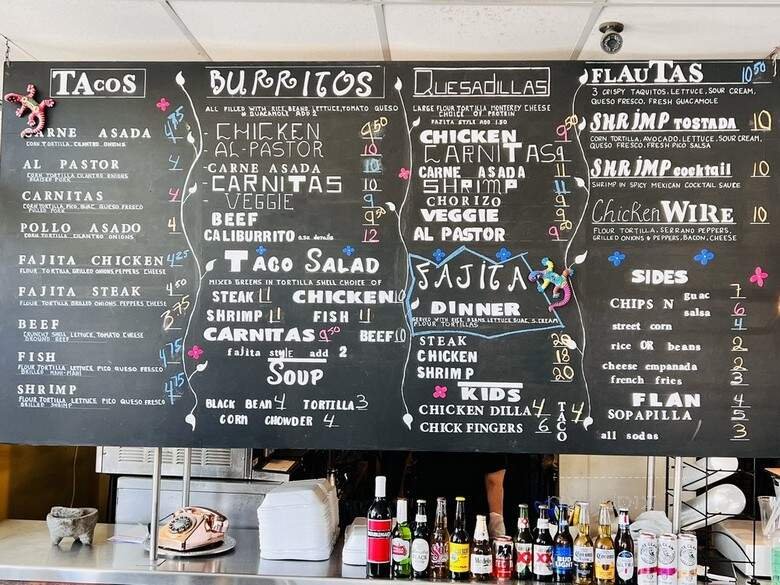 TACOS
CARNE ASADA 4.75
CORN TORTILLA CILANTRO ONIONS
AL PASTOR 4
CORN TORTILLA CILANTRO ONIONS
CARNITAS 4
CORN TORTILLA, PICO, GUAC, QUESO FRESCO
PULLED PORK
POLLO ASADO 4
CORN TORTILLA CILANTRO ONIONS
FAJITA CHICKEN 4.25
FLOUR TORTILLA GRILLED ONIONS, PEPPERS CHEESE
FAJITA STEAK 4.50
FLOUR TORTILLA GRILLED ONIONS, PEPPERS CHEESE
BEEF 3.75
CRUNCHY SHELL LETTUCE, TOMATO CHEESE
GROUND BEEF
FISH 4.75
FLOUR TORTILLA LETTUCE PICO QUESO FRESCO
GRILLED MAHI-MAHI
SHRIMP 4.75
FLOUR TORTILLA LETTUCE PICO QUESO FRESCO
GRILLED SHRIMP
BURRITOS
ALL FILLED WITH RICE, BEANS, LETTUCE, TOMATO QUESO
GUACAMOLE ADD 2
CHICKEN 9.50
AL-PASTOR 10
CARNE ASADA 10
CARNITAS 10
VEGGIE 9
BEEF 9.50
CALIBURRITO ask details 12
TACO SALAD
MIXED GREENS IN TORTILLA SHELL CHOICE OF
STEAK 11 CHICKEN 10
SHRIMP 11 FISH 11
CARNITAS 9.50 BEEF 10
fajita style add 2
SOUP
BLACK BEAN 4 TORTILLA 3
CORN CHOWDER 4
QUESADILLAS
LARGE FLOUR TORTILLA MONTEREY CHEESE
CHOICE OF PROTEIN
FAJITA STYLE ADD 1.50
CHICKEN 9
CARNITAS 9
CARNE ASADA 11
SHRIMP 11
CHORIZO 9
VEGGIE 9
AL PASTOR 9
FAJITA
DINNER
SERVED WITH RICE, BEANS, LETTUCE, GUAC, S. CREAM
FLOUR TORTILLAS
STEAK 20
CHICKEN 18
SHRIMP 20
KIDS
CHICKEN DILLA 4 TACO 4
CHICK FINGERS 6
FLAUTAS 10.50
3 CRISPY TAQUITOS, LETTUCE, SOUR CREAM,
QUESO FRESCO, FRESH GUACAMOLE
SHRIMP TOSTADA 10
CORN TORTILLA, AVOCADO, LETTUCE, SOUR CREAM,
QUESO FRESCO, FRESH PICO SALSA
SHRIMP cocktail 10
SHRIMP IN SPICY MEXICAN COCKTAIL SAUCE
Chicken WIRE 10
FLOUR TORTILLA, SERRANO PEPPERS,
GRILLED ONIONS & PEPPERS, BACON, CHEESE
SIDES
CHIPS N guac 7
salsa 6
street corn 4
rice OR beans 2
cheese empanada 2
french fries 3
FLAN 4
SOPAPILLA 5
all sodas 3
BUD LIGHT